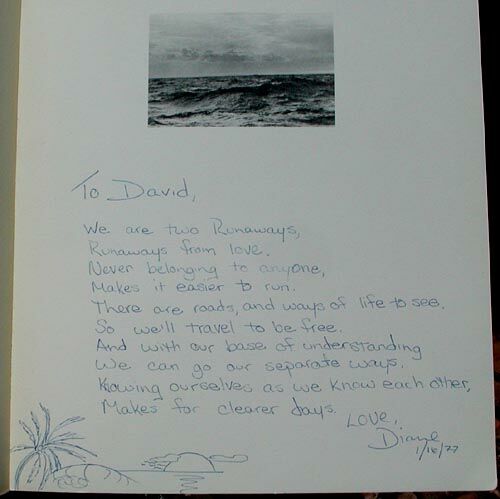 To David,
We are two Runaways,
Runaways from love.
Never belonging to anyone,
Makes it easier to run.
There are roads, and ways of life to see.
So we'll travel to be free.
And with our base of understanding
We can go our separate ways.
Knowing ourselves as we know each other,
Makes for clearer days.
Love,
Diane
1/16/77